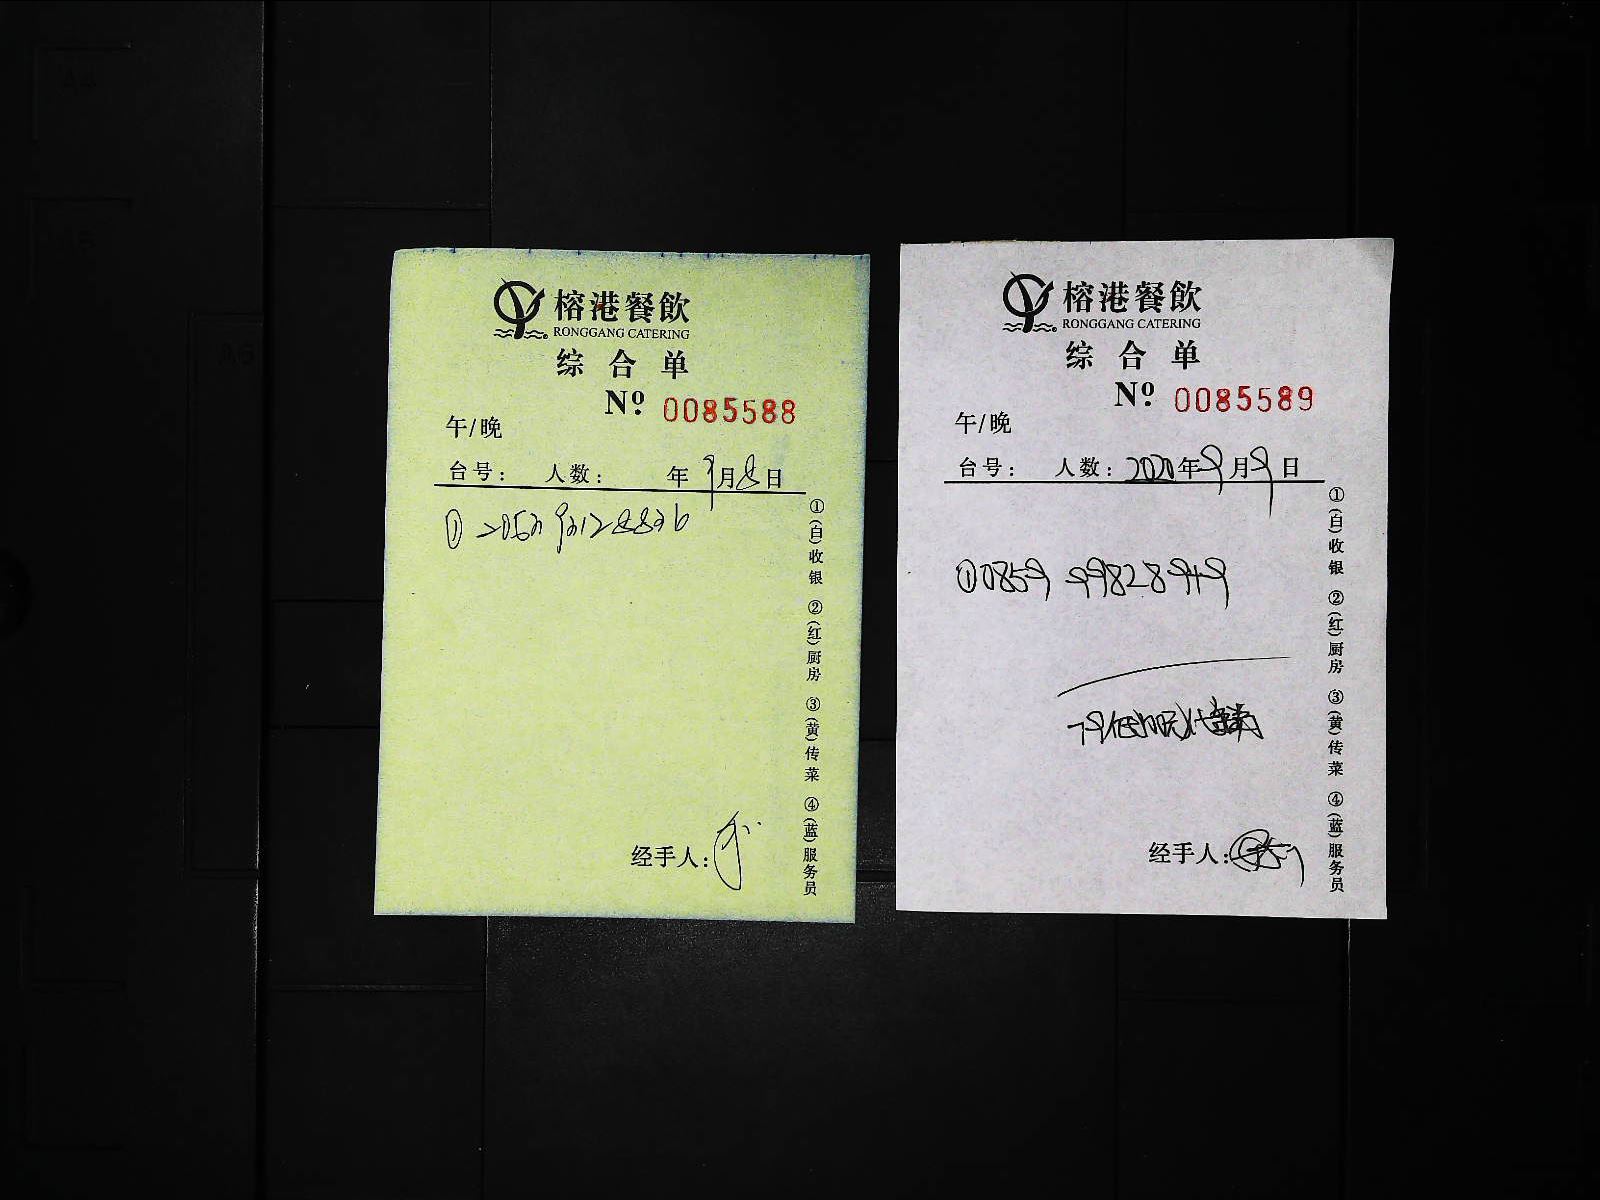 榕港餐飲
RONGGANG CATERING
综合单
Nº 0085588
午/晚
台号: 人数: 年9月8日
①
经手人:
①(白)收银 ②(红)厨房 ③(黄)传菜 ④(蓝)服务员
榕港餐飲
RONGGANG CATERING
综合单
Nº 0085589
午/晚
台号: 人数: 2020年9月9日
①0859 99828949
经手人:
①(白)收银 ②(红)厨房 ③(黄)传菜 ④(蓝)服务员